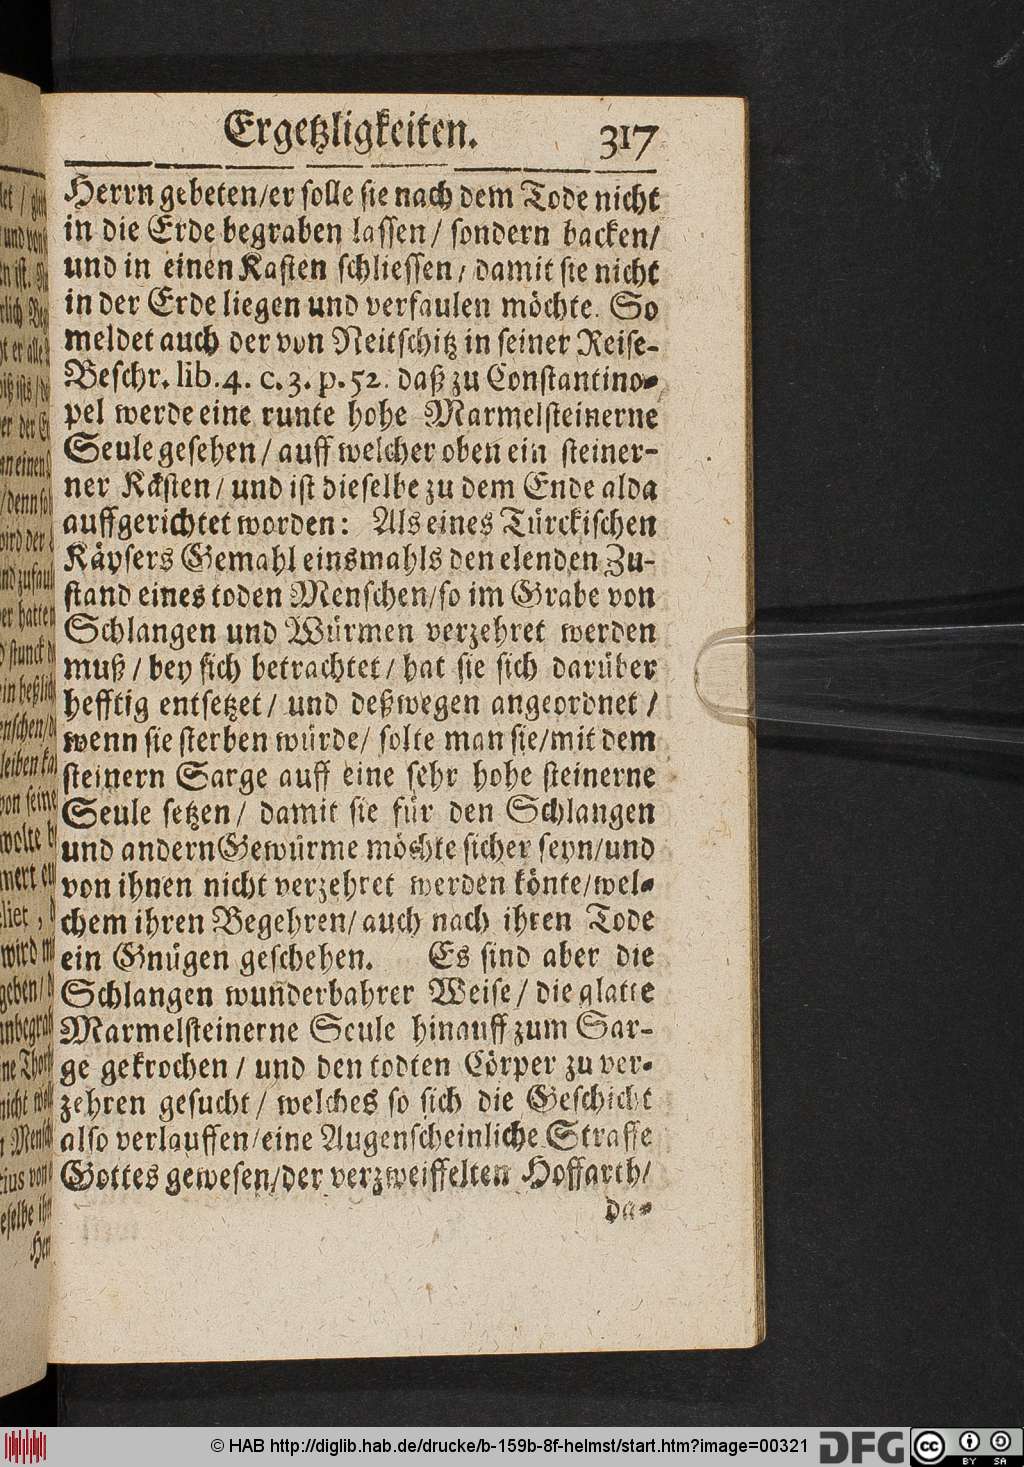 Ergetzligkeiten. 317
Herrn gebeten/er solle sie nach dem Tode nicht
in die Erde begraben lassen/ sondern backen/
und in einen Kasten schliessen/ damit sie nicht
in der Erde liegen und verfaulen möchte. So
meldet auch der von Neitschitz in seiner Reise-
Beschr. lib. 4. c. 3. p. 52. daß zu Constantino-
pel werde eine runte hohe Marmelsteinerne
Seule gesehen/ auff welcher oben ein steiner-
ner Kasten/ und ist dieselbe zu dem Ende alda
auffgerichtet worden: Als eines Türckischen
Käysers Gemahl einsmahls den elenden Zu-
stand eines toden Menschen/so im Grabe von
Schlangen und Würmen verzehret werden
muß/ bey sich betrachtet/ hat sie sich darüber
hefftig entsetzet/ und deßwegen angeordnet/
wenn sie sterben würde/ solte man sie/mit dem
steinern Sarge auff eine sehr hohe steinerne
Seule setzen/ damit sie für den Schlangen
und andern Gewürme möchte sicher seyn/und
von ihnen nicht verzehret werden könte/wel-
chem ihren Begehren/ auch nach ihren Tode
ein Gnügen geschehen. Es sind aber die
Schlangen wunderbahrer Weise/ die glatte
Marmelsteinerne Seule hinauff zum Sar-
ge gekrochen/ und den todten Cörper zu ver-
zehren gesucht/ welches so sich die Geschicht
also verlauffen/eine Augenscheinliche Straffe
Gottes gewesen/der verzweiffelten Hoffarth/
da-
© HAB http://diglib.hab.de/drucke/b-159b-8f-helmst/start.htm?image=00321
DFG
cc BY SA